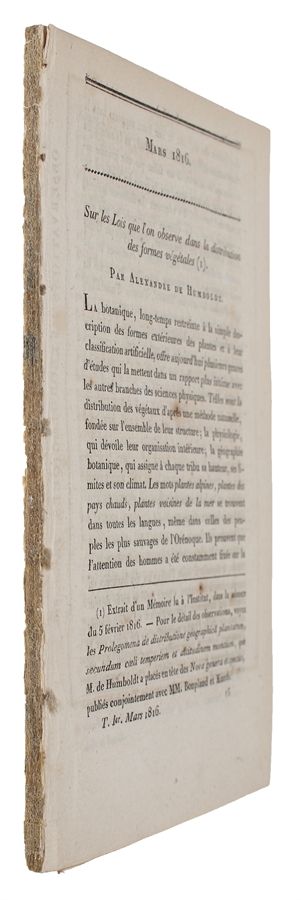 MARS 1816.
Sur les Lois que l'on observe dans la distribution
des formes végétales (1).
PAR ALEXANDRE DE HUMBOLDT.
LA botanique, long-temps restreinte à la simple des-
cription des formes extérieures des plantes et à leur
classification artificielle, offre aujourd'hui plusieurs genres
d'études qui la mettent dans un rapport plus intime avec
les autres branches des sciences physiques. Telles sont la
distribution des végétaux d'après une méthode naturelle,
fondée sur l'ensemble de leur structure; la physiologie,
qui dévoile leur organisation intérieure; la géographie
botanique, qui assigne à chaque tribu sa hauteur, ses li-
mites et son climat. Les mots plantes alpines, plantes des
pays chauds, plantes voisines de la mer se trouvent
dans toutes les langues, même dans celles des peu-
ples les plus sauvages de l'Orénoque. Ils prouvent que
l'attention des hommes a été constamment fixée sur la
(1) Extrait d'un Mémoire lu à l'Institut, dans la séance
du 5 février 1816. — Pour le détail des observations, voyez
les Prolegomena de distributione geographicâ plantarum,
secundum cœli temperiem et altitudinem montium, que
M. de Humboldt a placés en tête des Nova genera et species,
publiés conjointement avec MM. Bonpland et Kunth.
T. Ier. Mars 1816.